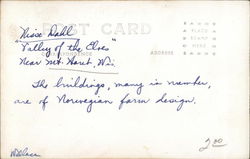 POST CARD
"Nissedahl
"Valley of the Elves"
Near Mt. Horeb, Wis.
PLACE
STAMP
HERE
The buildings, many in number,
are of Norwegian farm design.
2.00
Wallace